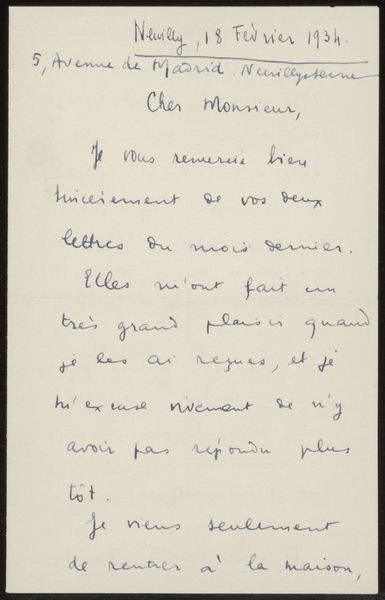 Neuilly, 18 Février 1934.
5, Avenue de Madrid. Neuilly s Seine
Cher Monsieur,
Je vous remercie bien
sincèrement de vos deux
lettres du mois dernier.
Elles m'ont fait un
très grand plaisir quand
je les ai reçues, et je
m'excuse vivement de n'y
avoir pas répondu plus
tôt.
Je viens seulement
de rentrer à la maison,